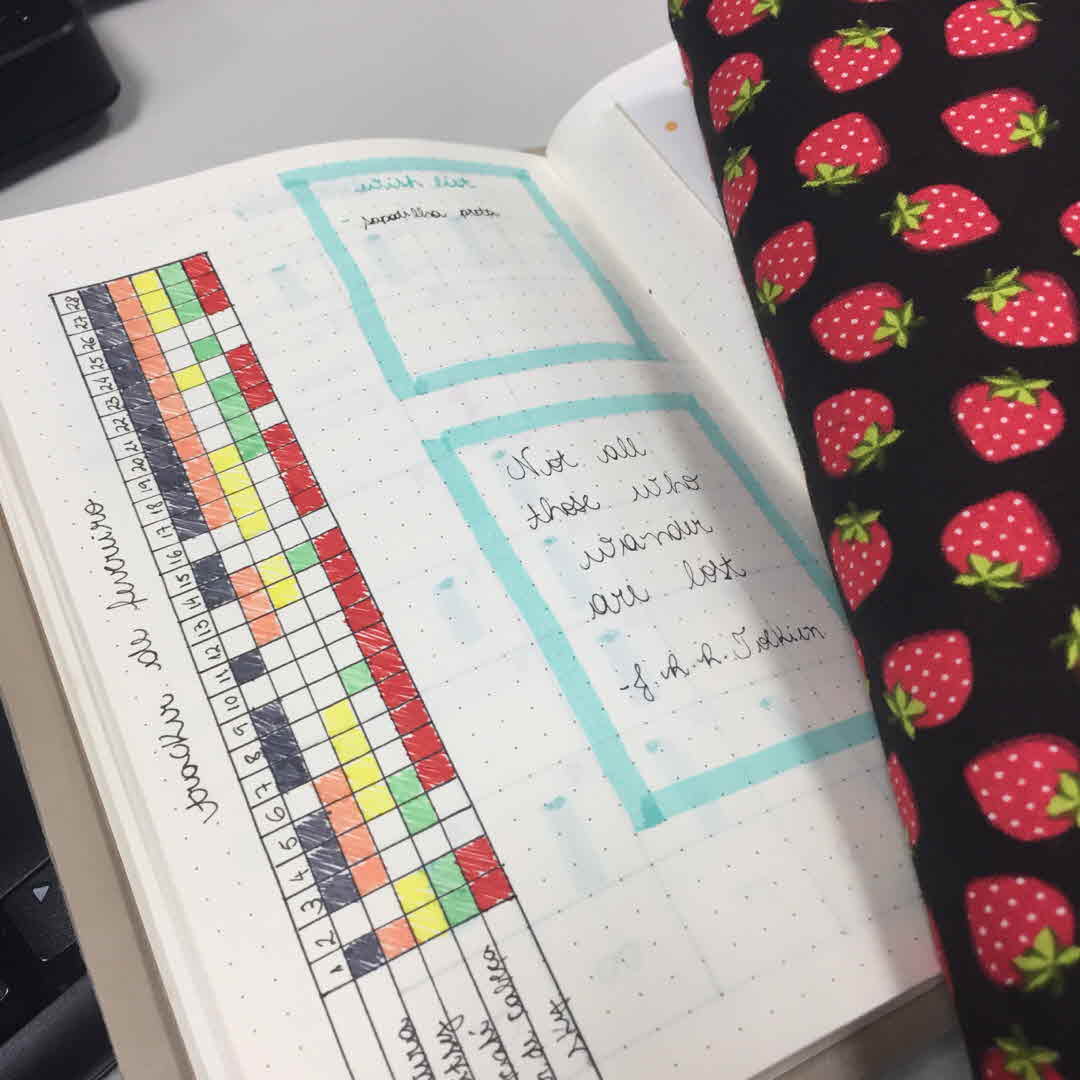 wish list
- sapatilha preta
Not all
those who
wander
are lost
- J.R.R. Tolkien
tracker de fevereiro
1 2 3 4 5 6 7 8 9 10 11 12 13 14 15 16 17 18 19 20 21 22 23 24 25 26 27 28